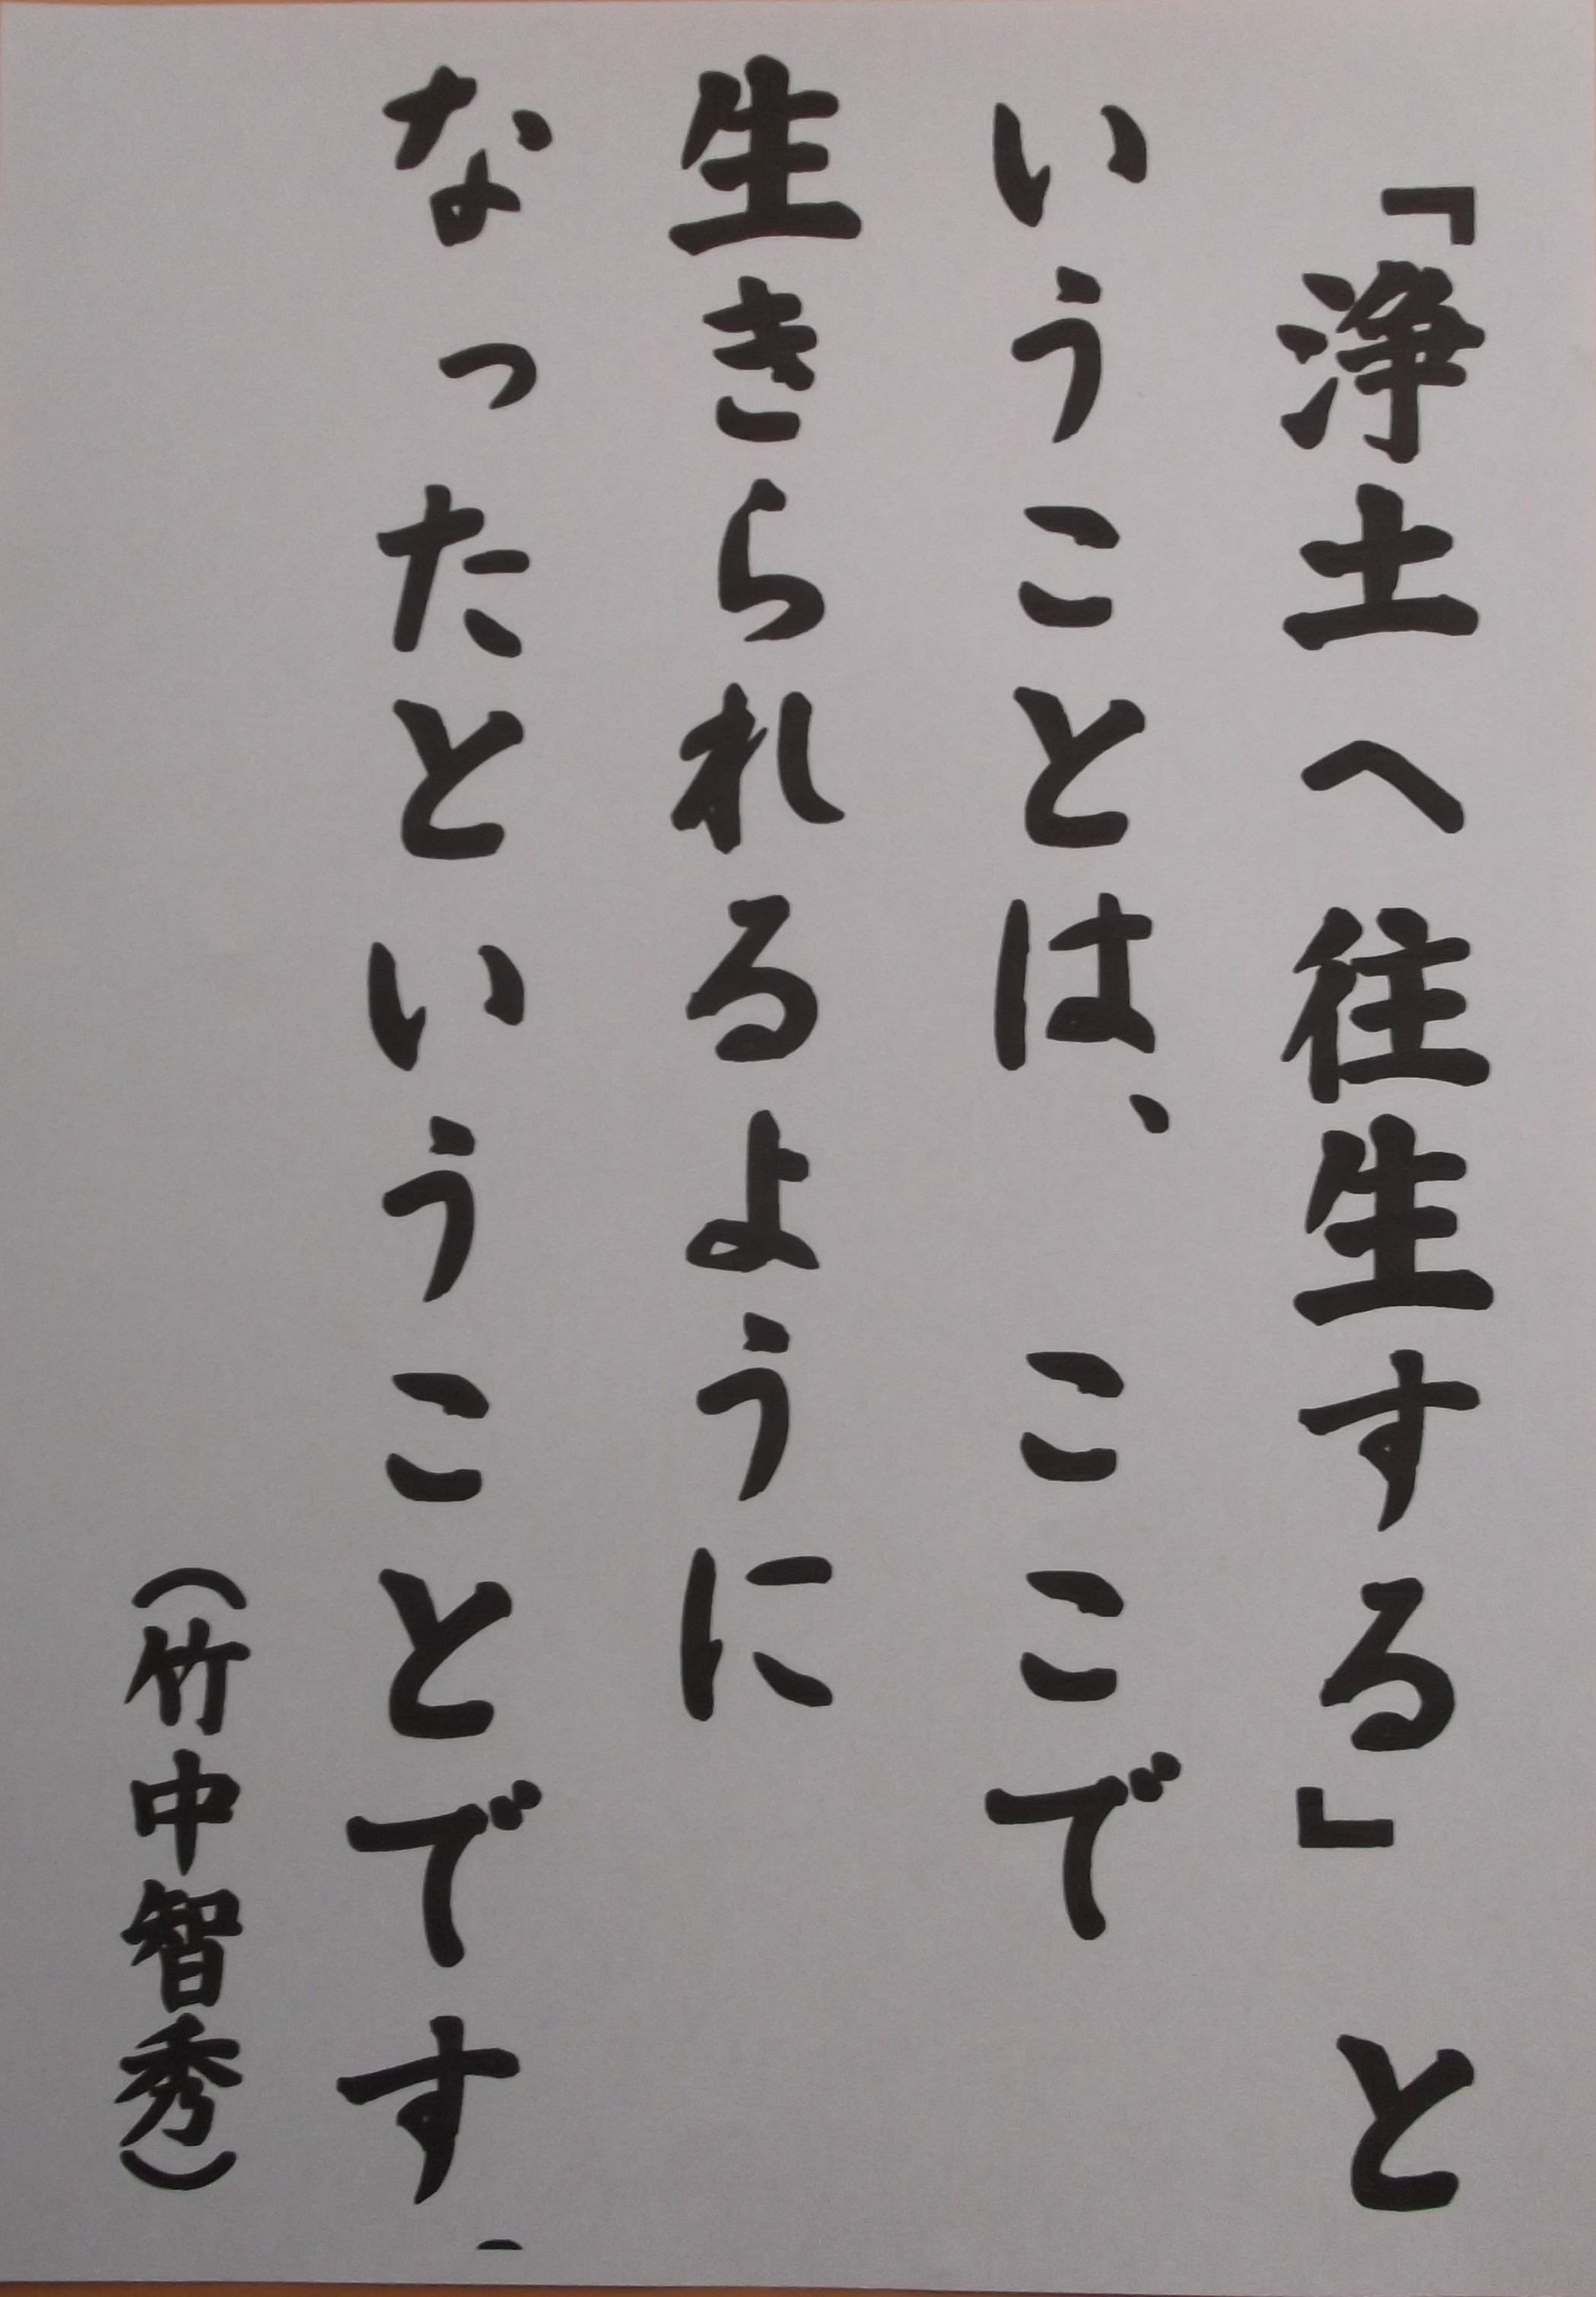 「浄土へ往生する」と
いうことは、　ここで
生きられるように
なったということです。
（竹中智秀）